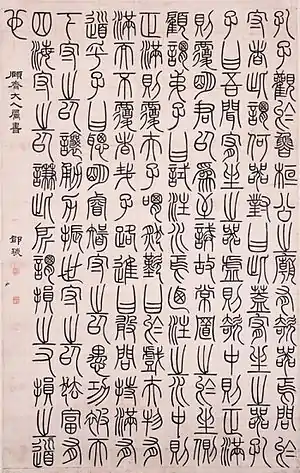 孔子觀於魯桓公之廟有欹器焉問於
守者此謂何器對曰此蓋宥坐之器孔
子曰吾聞宥坐之器虛則欹中則正滿
則覆明君以為至誡故常置之於坐側
顧謂弟子曰試注水焉乃注之水中則
正滿則覆夫子喟然歎曰於戲夫物有
滿而不覆者哉子路進曰敢問持滿有
道乎子曰聰明睿智守之以愚功被天
下守之以讓勇力振世守之以怯富有
四海守之以謙此所謂損之又損之道
也
顧齋大人屬書 鄧琰